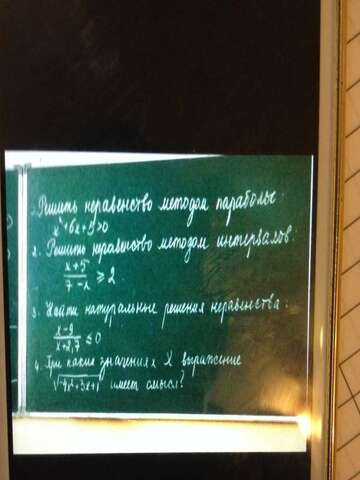 1. Решить неравенство методом параболы:
x²+6x+5>0
2. Решить неравенство методом интервалов:
x+5
7-x ≥ 2
3. Найти натуральные решения неравенства:
x-9
x+2,7 ≤ 0
4. При каких значениях X выражение
√-4x²+3x+1 имеет смысл?